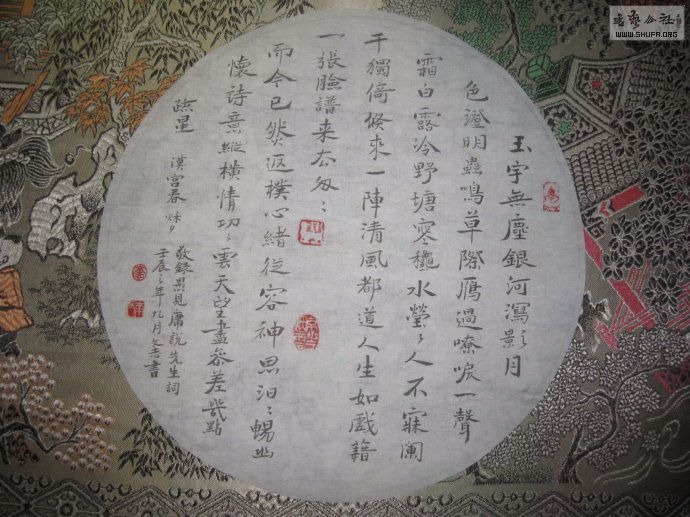 玉宇無塵銀河瀉影月
色澄明蟲鳴草際雁過嘹唳一聲
霜白露冷野塘寒穐水瑩〻人不寐闌
干獨倚倏來一陣清風都道人生如戲籍
一張臉譜来太匆〻
而今已然返樸心緒從容神思汩〻暢幽
懷詩意縱橫情切〻雲天望盡參差幾點
疏星
漢宮春 秋夕
敬錄吳見庸說先生詞
壬辰之年九月文書
書藝公社
WWW.SHUFA.ORG